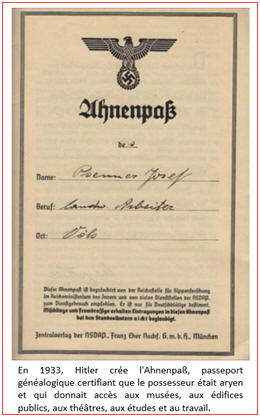 Ahnenpaß
des
Name: Josef
Beruf: landw. Arbeiter
Ort: Völs
Dieser Ahnenpaß ist begutachtet von der Reichsstelle für Sippenforschung
im Reichsministerium des Innern und von vielen Dienststellen der NSDAP.
zum Dienstgebrauch empfohlen. Er ist nur für Deutschblütige bestimmt.
Mischlinge und Fremdrassige erhalten Eintragungen in diesen Ahnenpaß
bei den Standesämtern nicht beglaubigt.
Zentralverlag der NSDAP., Franz Eher Nachf. G. m. b. H., München
En 1933, Hitler crée l'Ahnenpaß, passeport
généalogique certifiant que le possesseur était aryen
et qui donnait accès aux musées, aux édifices
publics, aux théâtres, aux études et au travail.